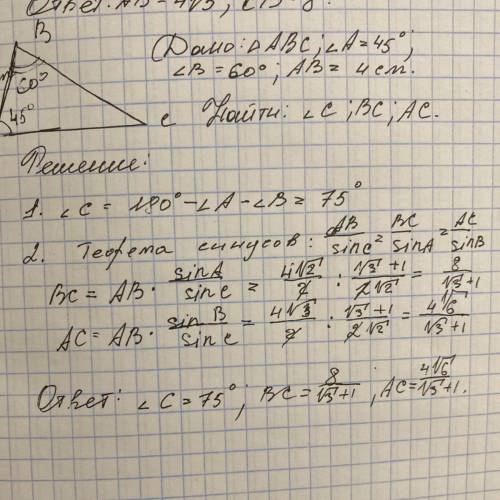 Ответ: AB = 4√3;
B
60°
45°
C
Дано: △ABC; ∠A = 45°;
∠B = 60°; AB = 4 см.
Найти: ∠C; BC; AC.
Решение:
1. ∠C = 180° - ∠A - ∠B = 75°
2. Теорема синусов: AB/sinC = BC/sinA = AC/sinB
BC = AB · sinA/sinC = 4√2/2 : (√3+1)/2√2 = 8/(√3+1)
AC = AB · sinB/sinC = 4√3/2 : (√3+1)/2√2 = 4√6/(√3+1)
Ответ: ∠C = 75°; BC = 8/(√3+1); AC = 4√6/(√3+1).